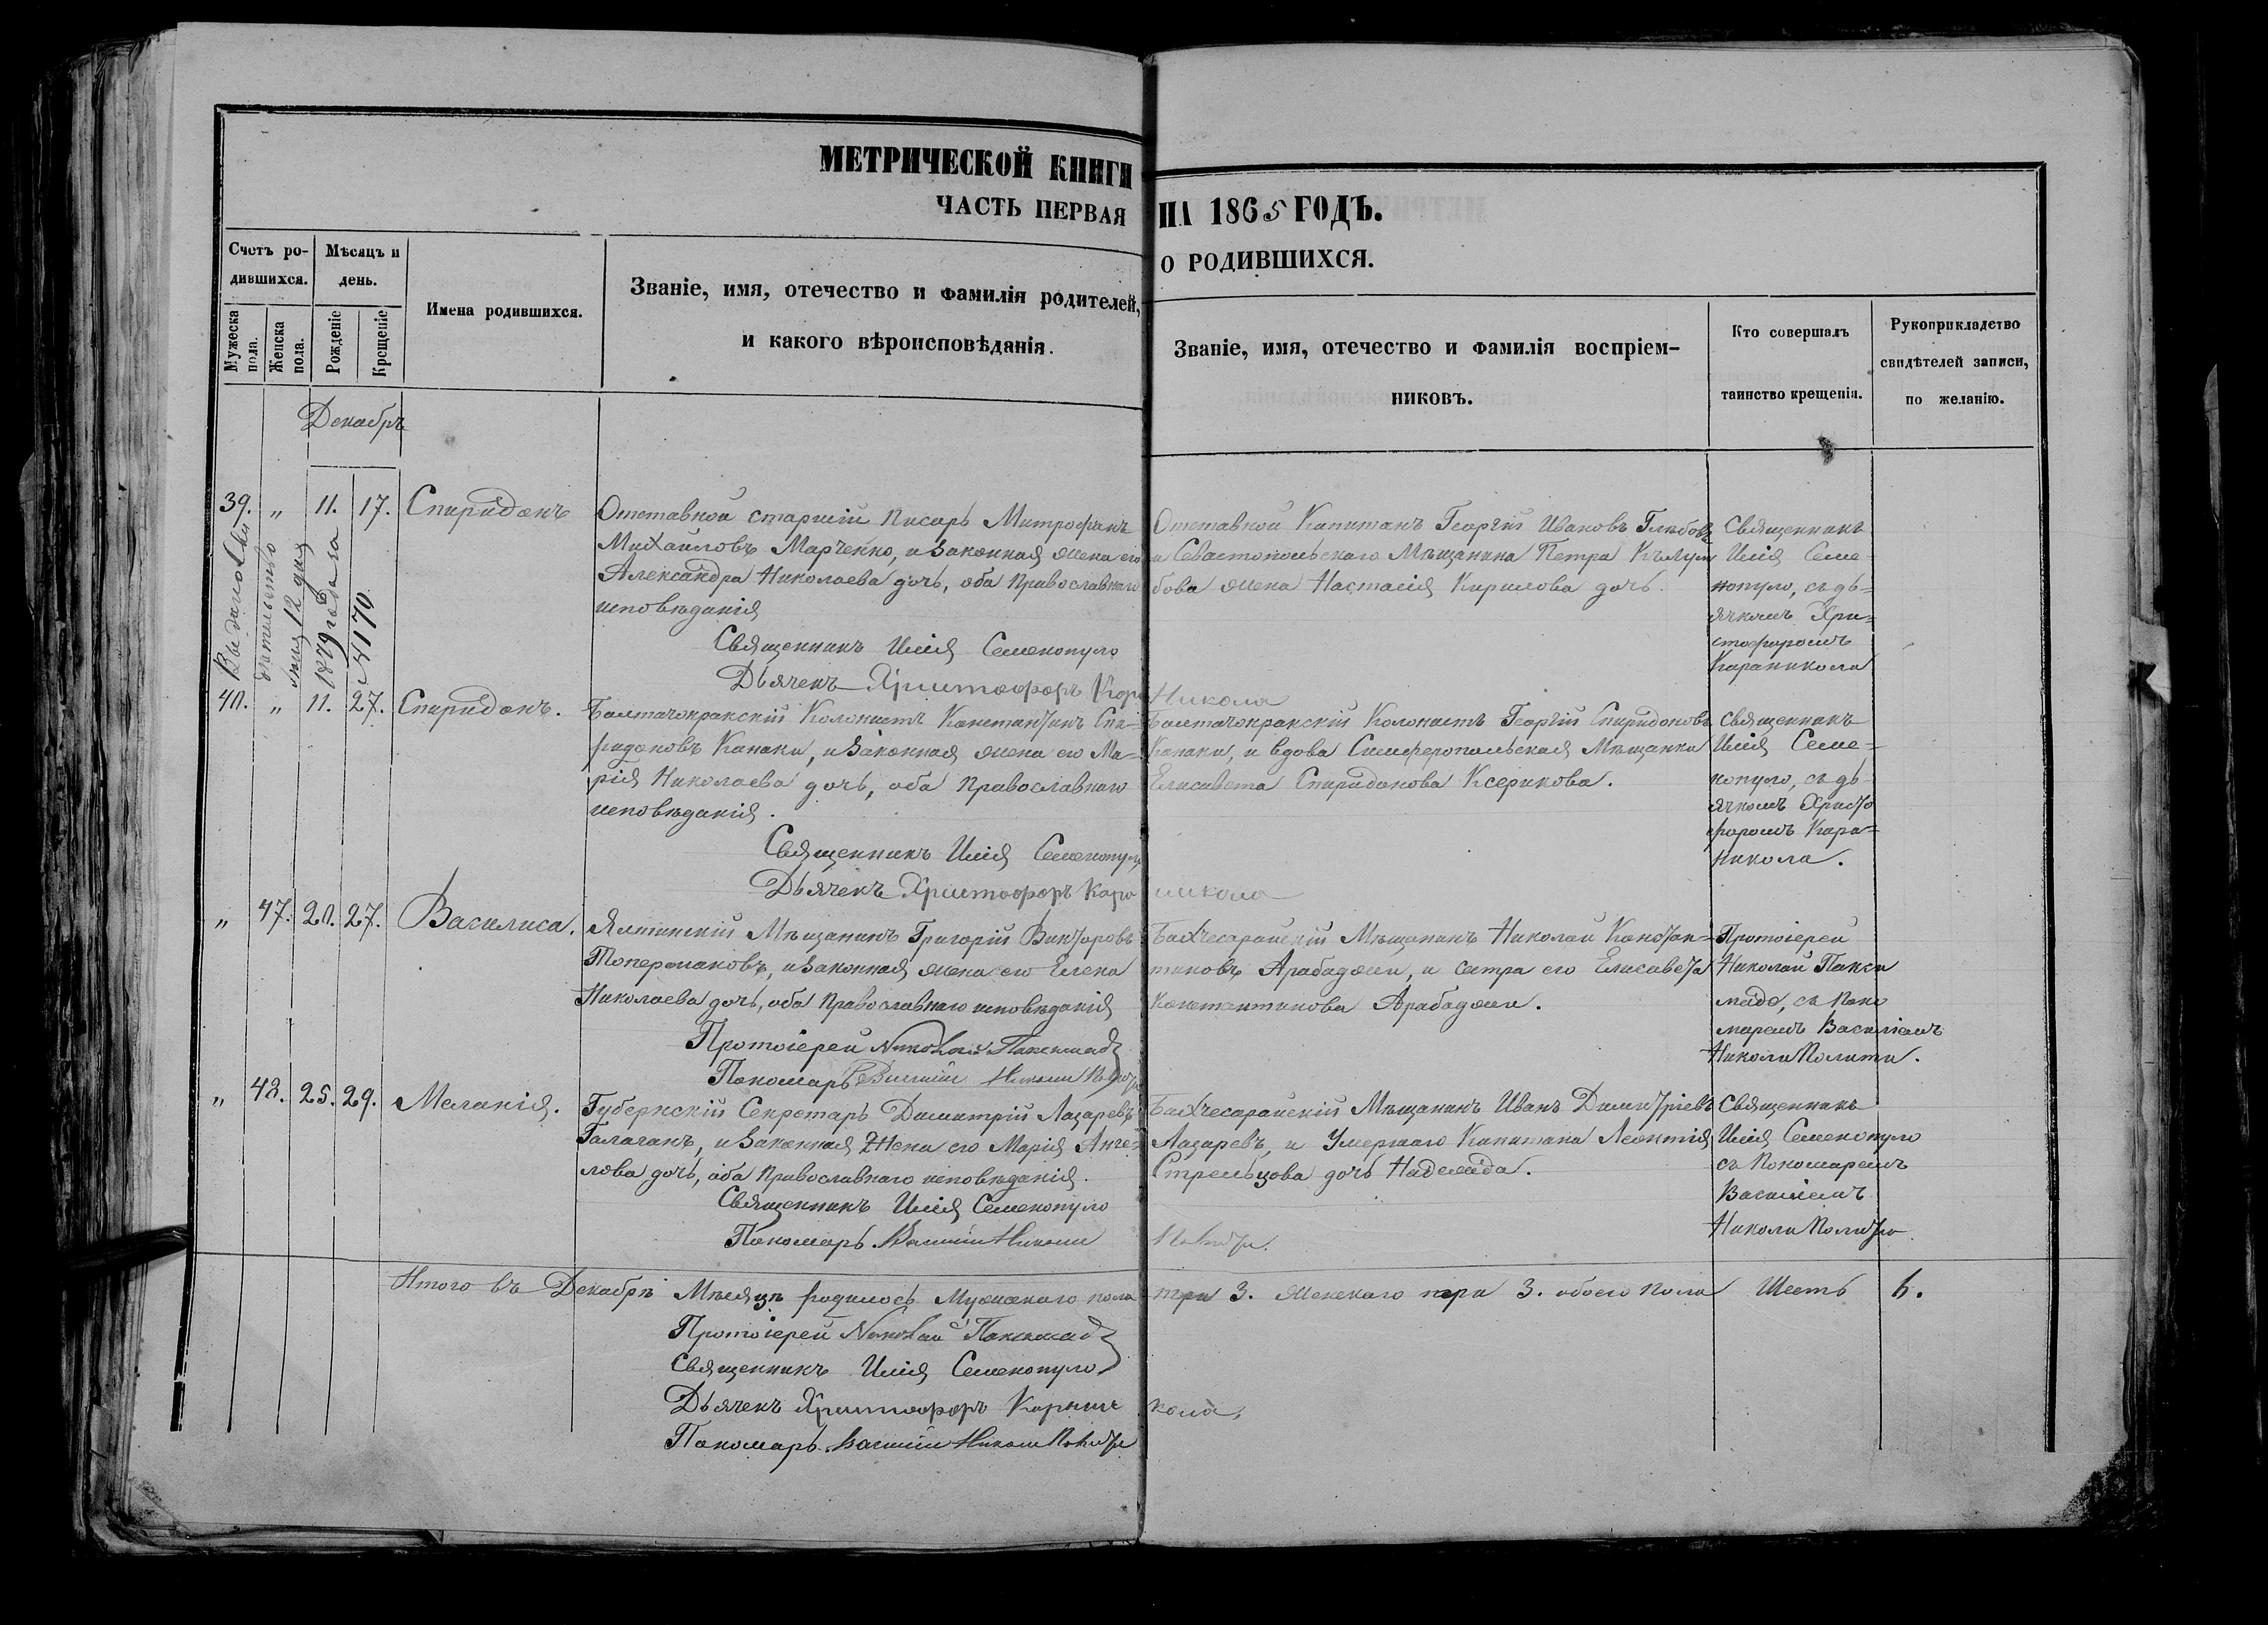 МЕТРИЧЕСКОЙ КНИГИ
НА 1865 ГОДЪ.
ЧАСТЬ ПЕРВАЯ
О РОДИВШИХСЯ.
Счетъ ро-
дившихся.
Мужеска пола.
Женска пола.
Мѣсяцъ и
день.
Рожденіе
Крещеніе
Имена родившихся.
Званіе, имя, отечество и фамилія родителей,
и какого вѣроисповѣданія.
Званіе, имя, отечество и фамилія воспріем-
никовъ.
Кто совершалъ
таинство крещенія.
Рукоприкладство
свидѣтелей записи,
по желанію.
Декабрь
39. „ 11. 17. Спиридонъ
1879 года за
№ 170
Отставной старшій писарь Митрофанъ
Михайловъ Марченко, и законная жена его
Александра Николаева дочь, оба Православнаго
исповѣданія
Священникъ Илія Семенопуло
Дьячекъ Христофоръ Кара
Никола
Отставной Капитанъ Георгій Ивановъ Глѣбовъ
и Севастопольскаго Мѣщанина Петра
бова жена Настасія Кирилова дочь.
Священникъ
Илія Семе-
нопуло, съ дь-
ячкомъ Хри-
стофоромъ
Караникола
40. „ 11. 27. Спиридонъ.
Балтачокракскій Колонистъ Константинъ Спи-
ридоновъ Канаки, и законная жена его Ма-
рія Николаева дочь, оба Православнаго
исповѣданія.
Священникъ Илія Семенопуло
Дьячекъ Христофоръ Кара
никола
Балтачокракскій Колонистъ Георгій Спиридоновъ
Канаки, и вдова Симферопольская Мѣщанка
Елисавета Спиридонова Ксерикова.
Священникъ
Илія Семе-
нопуло, съ дь-
ячкомъ Христо
форомъ Кара-
никола.
„ 47. 20. 27. Василиса.
Ялтинскій Мѣщанинъ Григорій Викторовъ
Топермаковъ, и законная жена его Елена
Николаева дочь, оба Православнаго исповѣданія
Протоіерей Николай Паксимадъ
Пономарь Василій Николи Полити
Бахчесарайскій Мѣщанинъ Николай Констан-
тиновъ Арабаджи, и сестра его Елисавета
Константинова Арабаджи.
Протоіерей
Николай Пакси
мадъ, съ Поно
маремъ Василіемъ
Николи Полити.
„ 48. 25. 29. Меланія.
Губернскій Секретарь Димитрій Лазаревъ
Галаганъ, и законная Жена его Марія Анге-
лова дочь, оба Православнаго исповѣданія.
Священникъ Илія Семенопуло
Пономарь Василій Николи
Полити.
Бахчесарайскій Мѣщанинъ Иванъ Димитріевъ
Лазаревъ, и Умершаго Капитана Леонтія
Стрельцова дочь Надежда.
Священникъ
Илія Семенопуло
съ Пономаремъ
Василіемъ
Николи Полити.
Итого въ Декабрѣ Мѣсяцѣ родилось Мужскаго пола три 3. женскаго три 3. обоего пола Шесть 6.
Протоіерей Николай Паксимадъ
Священникъ Илія Семенопуло
Дьячекъ Христофоръ Карани
кола,
Пономарь Василій Николи Полити